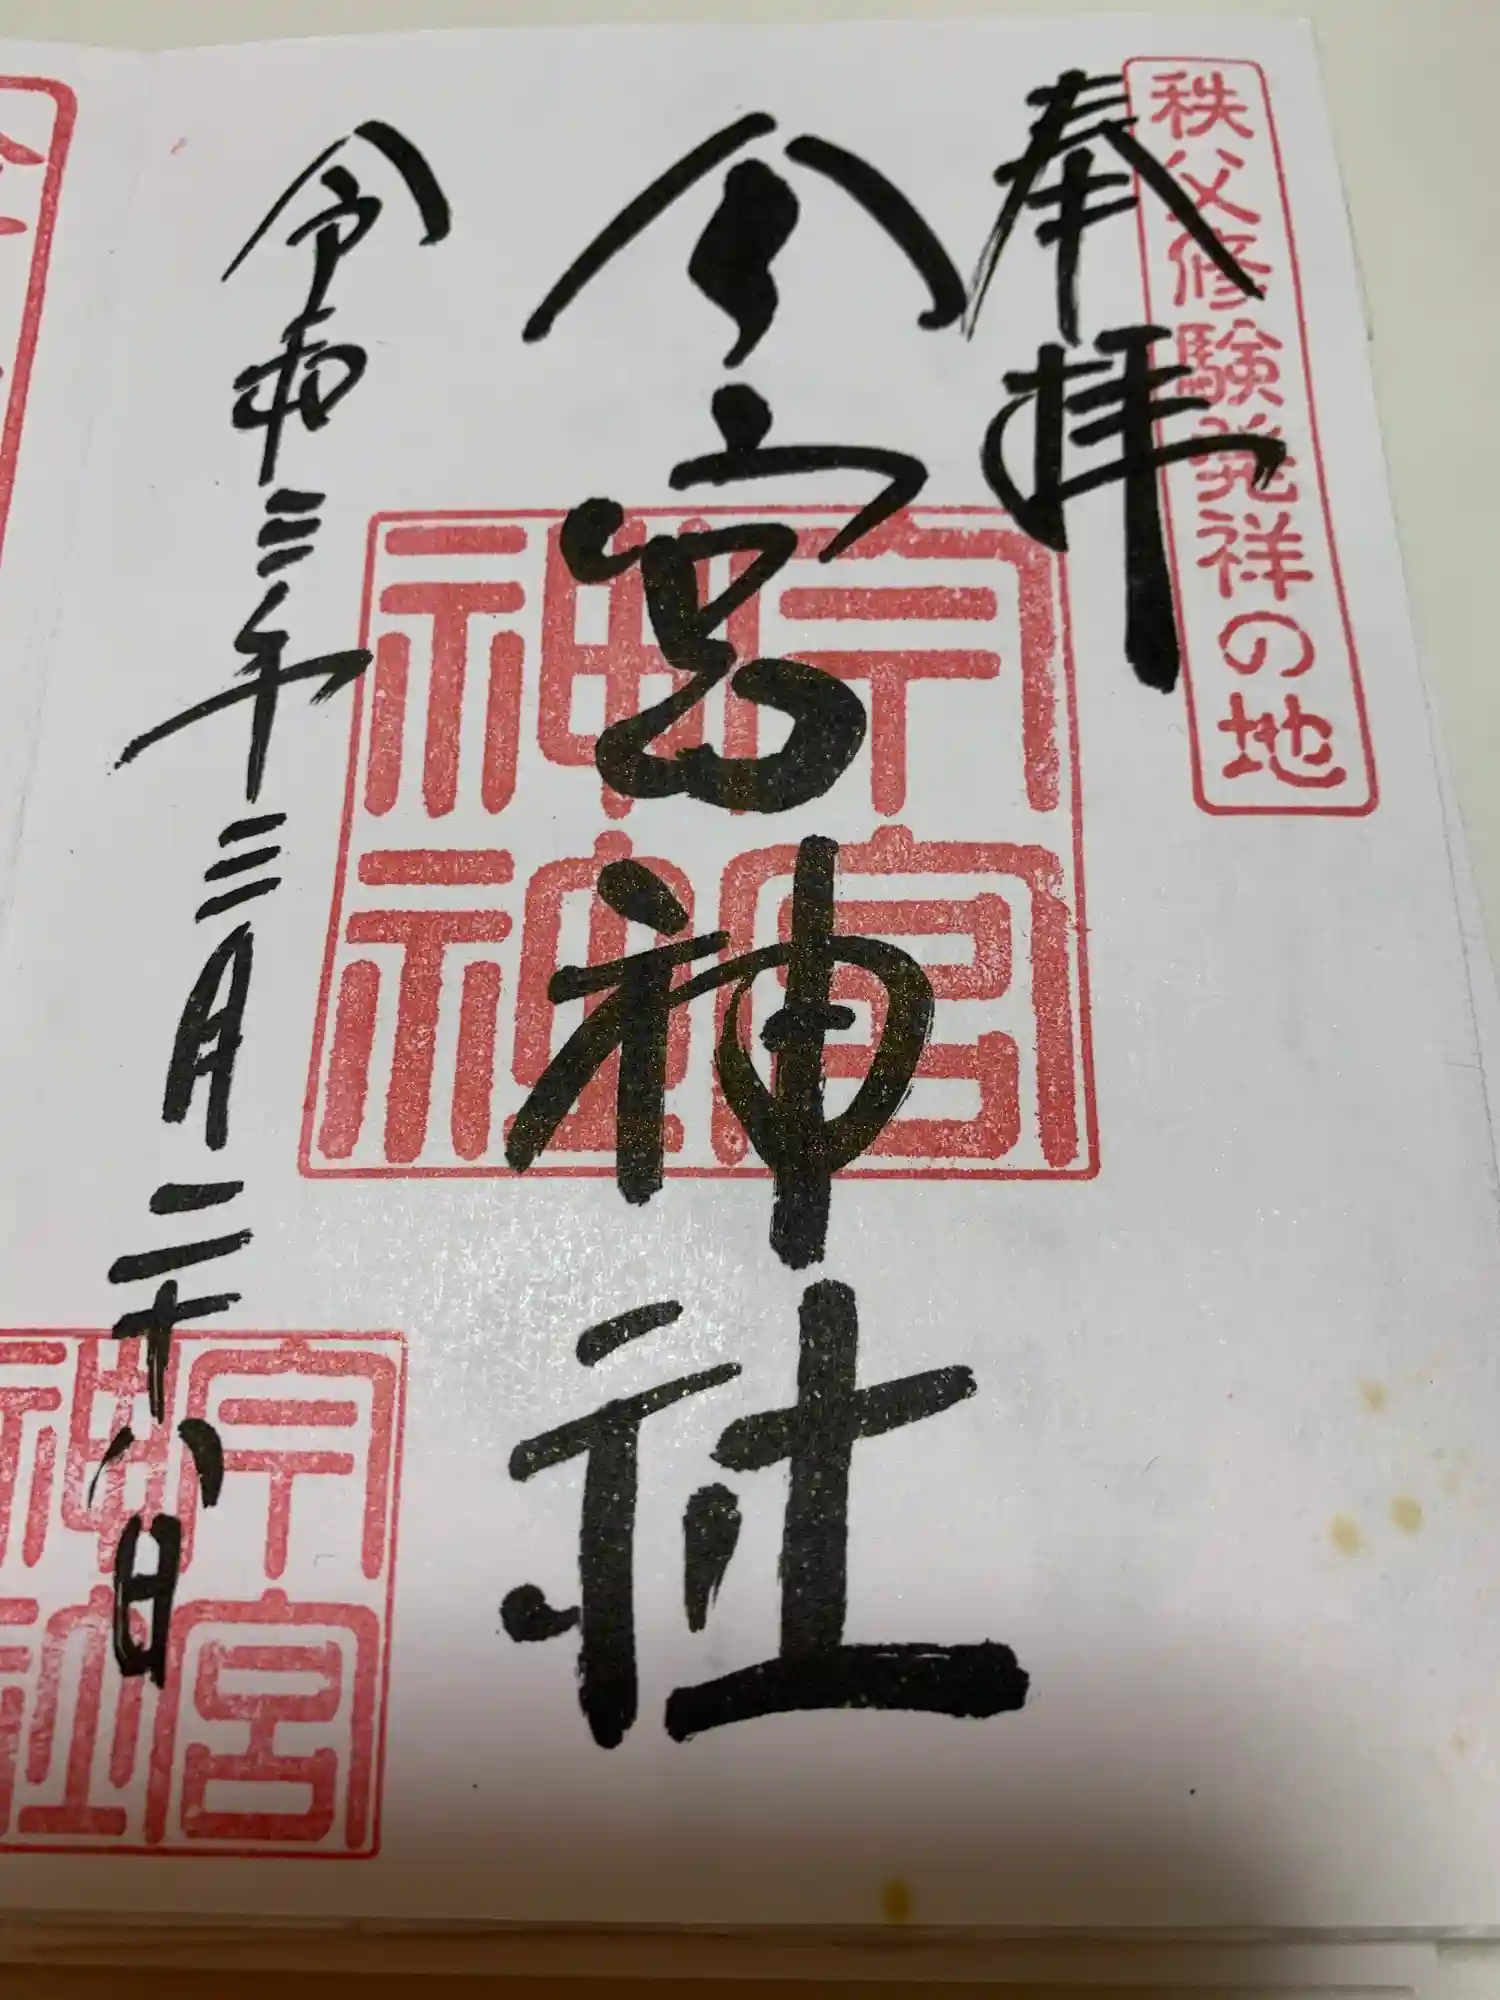 秩父修験発祥の地
奉拝
今宮神社
今宮神社
令和三年三月二十八日
今宮神社